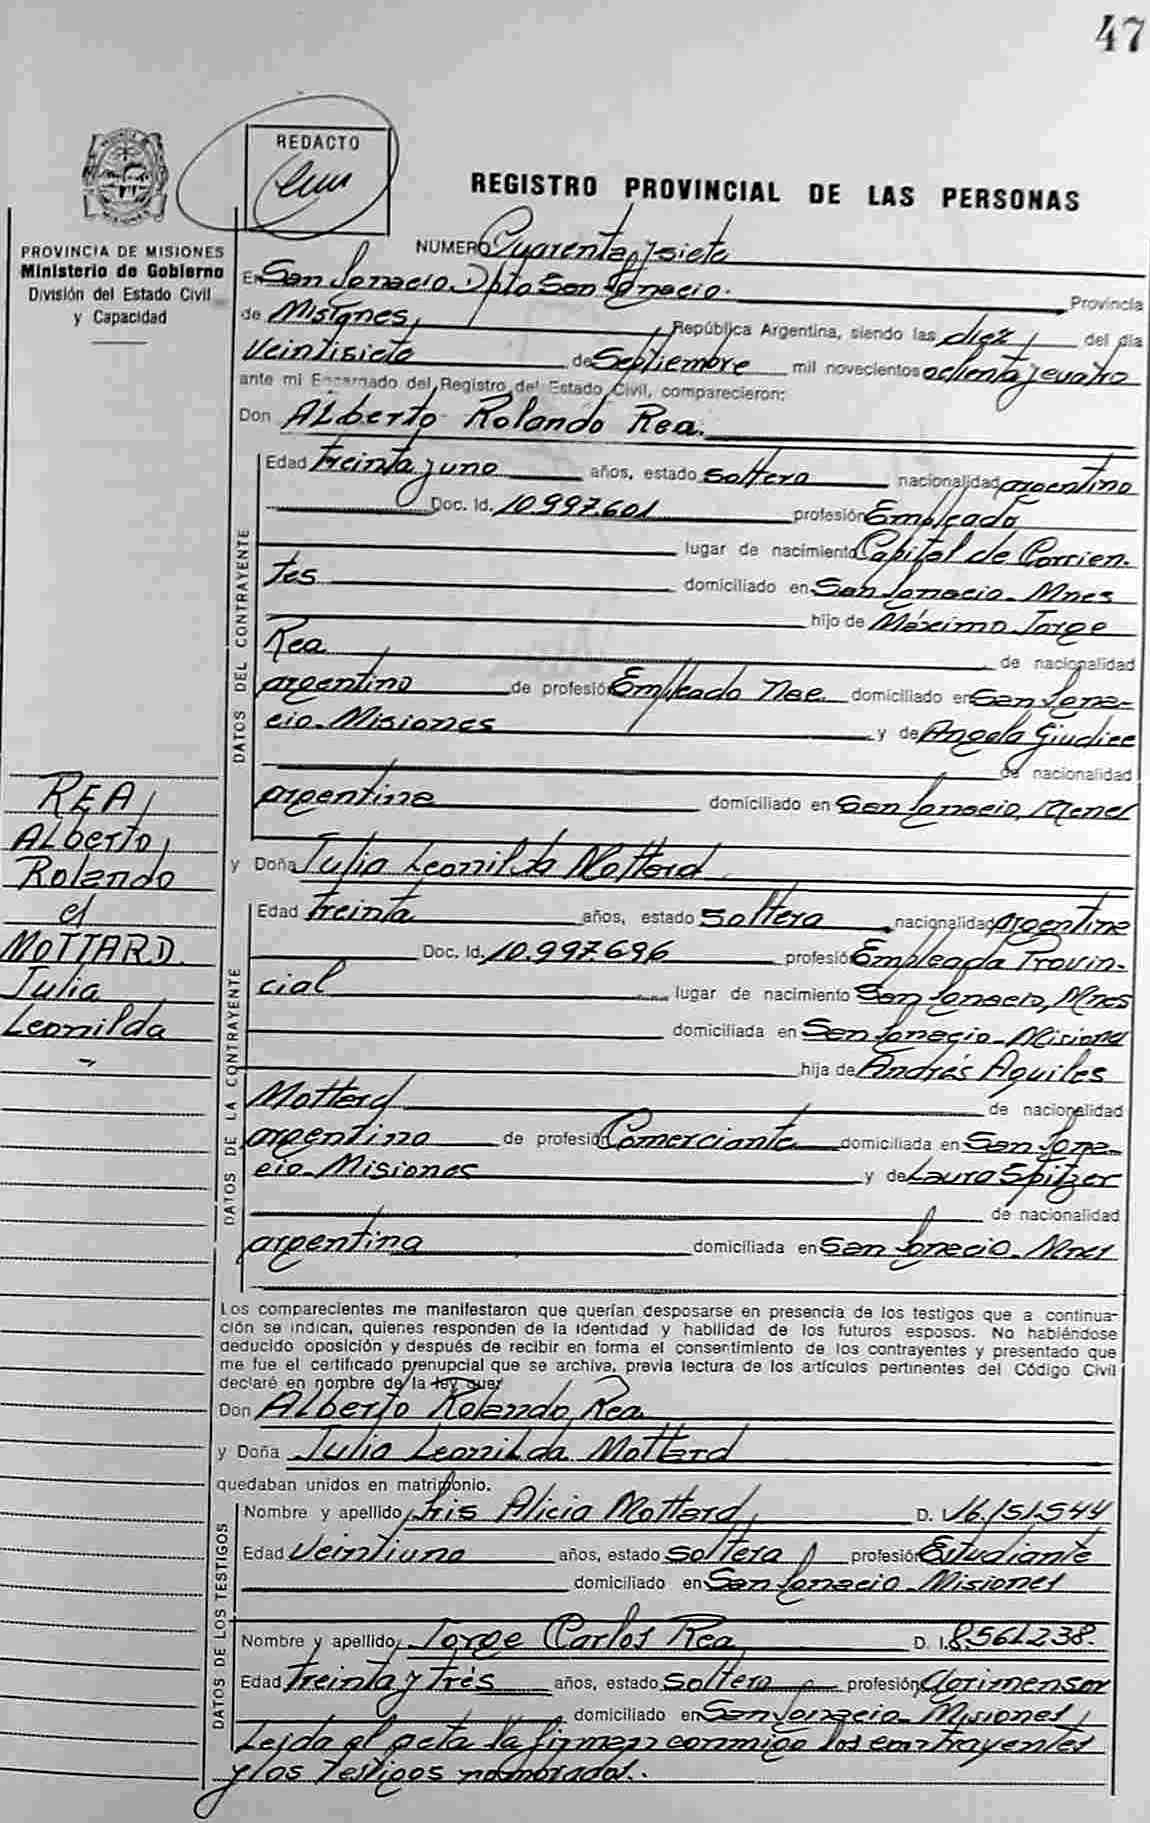 47
REDACTO
REGISTRO PROVINCIAL DE LAS PERSONAS
PROVINCIA DE MISIONES
Ministerio de Gobierno
División del Estado Civil
y Capacidad
NUMERO Cuarenta y siete
En San Ignacio Dpto San Ignacio. Provincia
de Misiones, República Argentina, siendo las diez del día
veintisiete de Septiembre mil novecientos ochenta y cuatro
ante mi Encargado del Registro del Estado Civil, comparecieron:
Don ALberto Rolando Rea.
DATOS DEL CONTRAYENTE
Edad treinta y uno años, estado soltero nacionalidad argentino
Doc. Id. 10.997.601 profesión Empleado
lugar de nacimiento Capital de Corrien-
tes domiciliado en San Ignacio - Mnes
hijo de Máximo Jorge
Rea de nacionalidad
argentino de profesión Empleado Nac. domiciliado en San Igna-
cio - Misiones y de Angela Giudice
de nacionalidad
argentina domiciliado en San Ignacio, Mnes
REA,
ALberto,
Rolando
c/
MOTTARD
Julia
Leonilda
y Doña Julia Leonilda Mottard
DATOS DE LA CONTRAYENTE
Edad treinta años, estado soltera nacionalidad argentina
Doc. Id. 10.997.696 profesión Empleada Provin-
cial lugar de nacimiento San Ignacio, Mnes
domiciliada en San Ignacio - Misiones
hija de Andrés Aquiles
Mottard de nacionalidad
argentino de profesión Comerciante domiciliada en San Igna-
cio - Misiones y de Laura Spitzer
de nacionalidad
argentina domiciliada en San Ignacio - Mnes
Los comparecientes me manifestaron que querían desposarse en presencia de los testigos que a continua-
ción se indican, quienes responden de la identidad y habilidad de los futuros esposos. No habiéndose
deducido oposición y después de recibir en forma el consentimiento de los contrayentes y presentado que
me fue el certificado prenupcial que se archiva, previa lectura de los artículos pertinentes del Código Civil
declaré en nombre de la ley que:
Don Alberto Rolando Rea
y Doña Julia Leonilda Mottard
quedaban unidos en matrimonio.
DATOS DE LOS TESTIGOS
Nombre y apellido Iris Alicia Mottard D. I. 16.151.544
Edad Veintiuno años, estado soltera profesión Estudiante
domiciliado en San Ignacio - Misiones
Nombre y apellido Jorge Carlos Rea D. I. 8.561.238.
Edad treinta y trés años, estado soltero profesión Agrimensor
domiciliado en San Ignacio - Misiones
Leída el acta la firman conmigo los contrayentes
y los testigos nombrados.